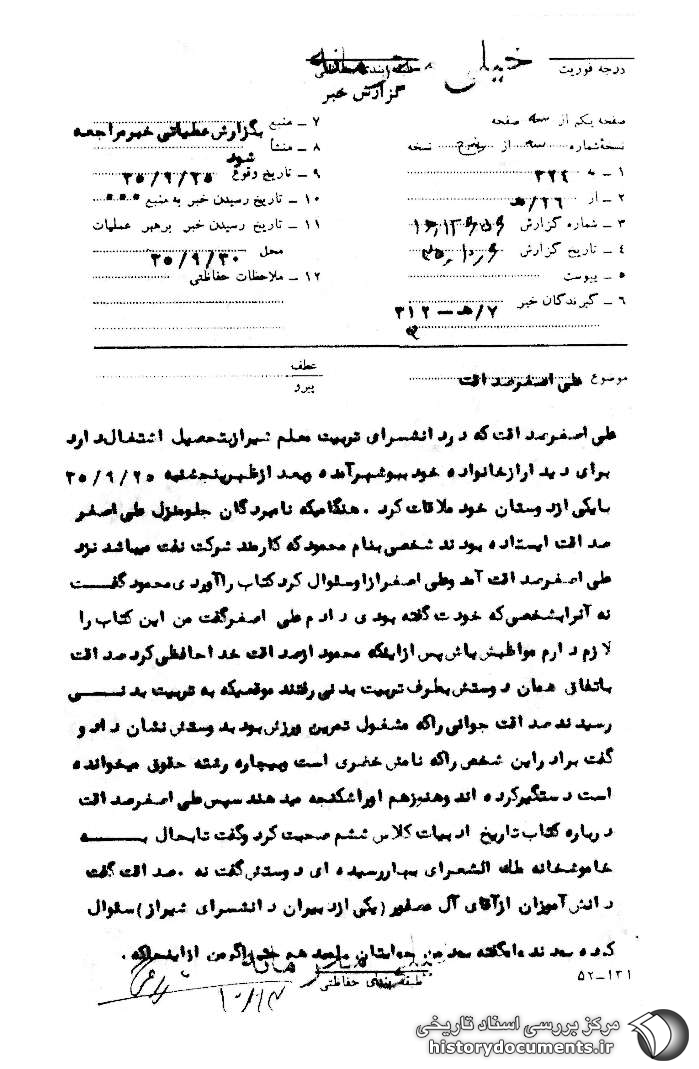 خیلی محرمانه
درجه فوریت
طبقه بندی حفاظتی
گزارش خبر
صفحه یکم از سه صفحه
نسخه شماره سه از پنج نسخه
۱ ـ به ۳۲۴
۲ ـ از ۲۶/ه
۳ ـ شماره گزارش
۴ ـ تاریخ گزارش
۵ ـ پیوست
۶ ـ گیرندگان خبر ۷/ه‍ ــ ۳۱۲
۷ ـ منبع بگزارش عملیاتی خبر مراجعه
۸ ـ منشأ شود
۹ ـ تاریخ وقوع ۳۵/۹/۲۵
۱۰ ـ تاریخ رسیدن خبر به منبع
۱۱ ـ تاریخ رسیدن خبر برهبر عملیات
محل ۳۵/۹/۳۰
۱۲ ـ ملاحظات حفاظتی
موضوع علی اصغر صداقت
عطف
پیرو
علی اصغر صداقت که در دانشسرای تربیت معلم شیراز بتحصیل اشتغال دارد
برای دیدار از خانواده خود ببوشهر آمده و بعد از ظهر پنجشنبه ۳۵/۹/۲۵
با یکی از دوستان خود ملاقات کرد . هنگامیکه نامبردگان جلو منزل علی اصغر
صداقت ایستاده بودند شخصی بنام محمود که کارمند شرکت نفت میباشد نزد
علی اصغر صداقت آمد و علی اصغر از او سئوال کرد کتاب را آوردی محمود گفت
نه آنرا بشخصی که خودت گفته بودی دادم علی اصغر گفت من این کتاب را
لازم دارم مواظبش باش پس از اینکه محمود از صداقت خداحافظی کرد صداقت
باتفاق همان دوستش بطرف تربیت بدنی رفتند موقعیکه به تربیت بدنی
رسیدند صداقت جوانی را که مشغول تمرین ورزش بود بدوستش نشان داد و
گفت برادر این شخص را که نامش خضری است و بیچاره رشته حقوق میخوانده
است دستگیر کرده اند و هنوز هم او را شکنجه میدهند سپس علی اصغر صداقت
درباره کتاب تاریخ ادبیات کلاس ششم صحبت کرد و گفت تا بحال به
خاموشخانه ملک الشعرای بهار رسیده ای دوستش گفت نه . صداقت گفت
دانش آموزان از آقای آل عصفور (یکی از دبیران دانشسرای شیراز) سئوال
کرده
طبقه بندی حفاظتی
۵۲ــ۱۳۱
مرکز بررسی اسناد تاریخی
historydocuments.ir